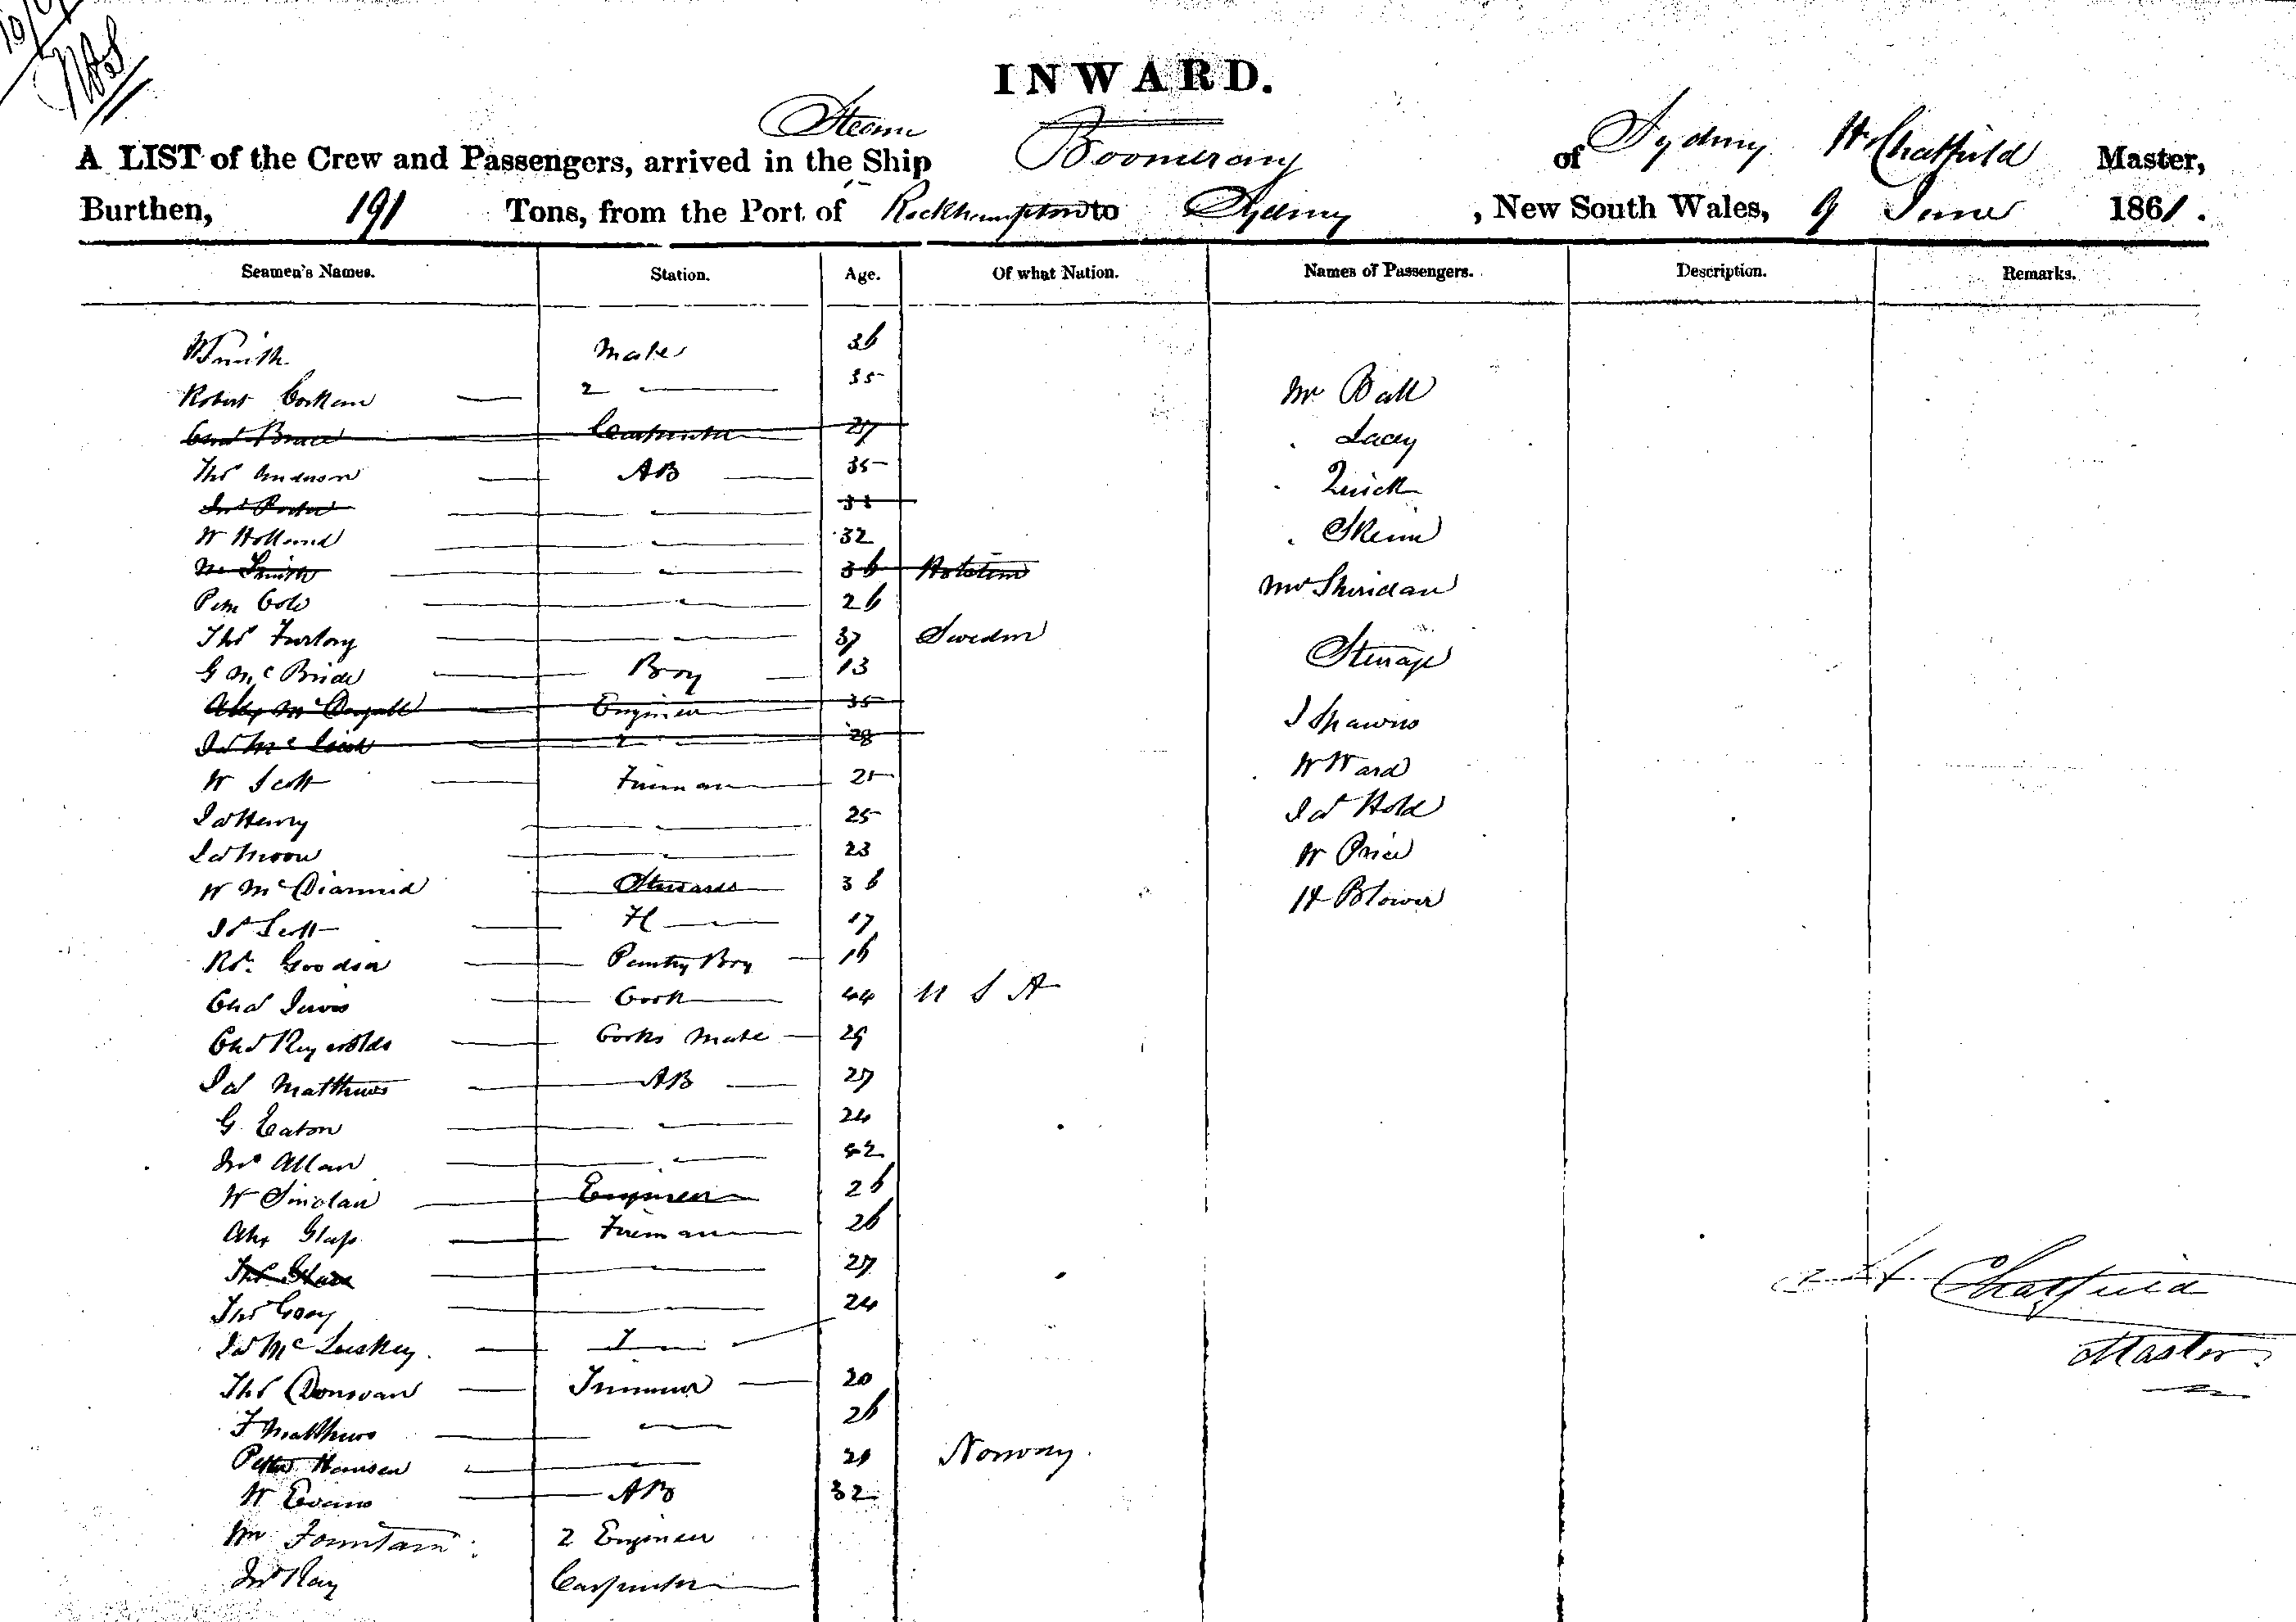 INWARD.
Steam
A LIST of the Crew and Passengers, arrived in the Ship Boomerang of Sydney H Chatfield Master,
Burthen, 191 Tons, from the Port of Rockhampton to Sydney , New South Wales, 9 June 1861.
Seamen's Names. Station. Age. Of what Nation. Names of Passengers. Description. Remarks.
W Smith Mate 36
Robert 2 35 Mr Ball
Chas Bruce Carpenter 27 Lacey
Thos Anderson AB 35
Jno Porter Quick
W Holland 32 Skene
Smith 36 Holstein
Cole 26 Mrs Sheridan
Thos Furlong 37 Sweden
G McBride Boy 13 Steerage
Alex McDougall Engineer 35
Jas 2 28 J
W Scott Fireman 25 W Ward
Jas Henry 25 Jas Hold
Jas Moon 23 W Price
W McDiarmid Steward 36 H Blower
Js Scott 17
Rt. Pantry Boy 16
Chas Cook 44 U S A
Chas Reynolds Cooks Mate 29
Jas Matthews AB 27
G Eaton 24
Jno Allan 42
W Sinclair Engineer 26
Alex Glass Fireman 26
Thos 27 H Chatfield
Thos 24
Jas McLuskey Master
Thos Donovan Trimmer 20
F Matthews 26
Peter Hansen 21 Norway.
W Evans AB 32
Wm Fountain 2 Engineer
Jno Ray Carpenter